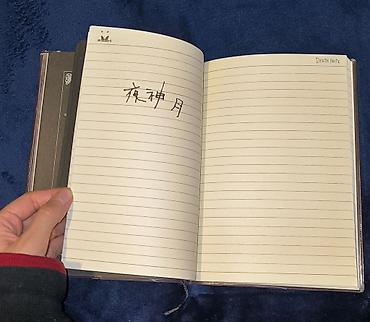 夜神月
DEATH NOTE